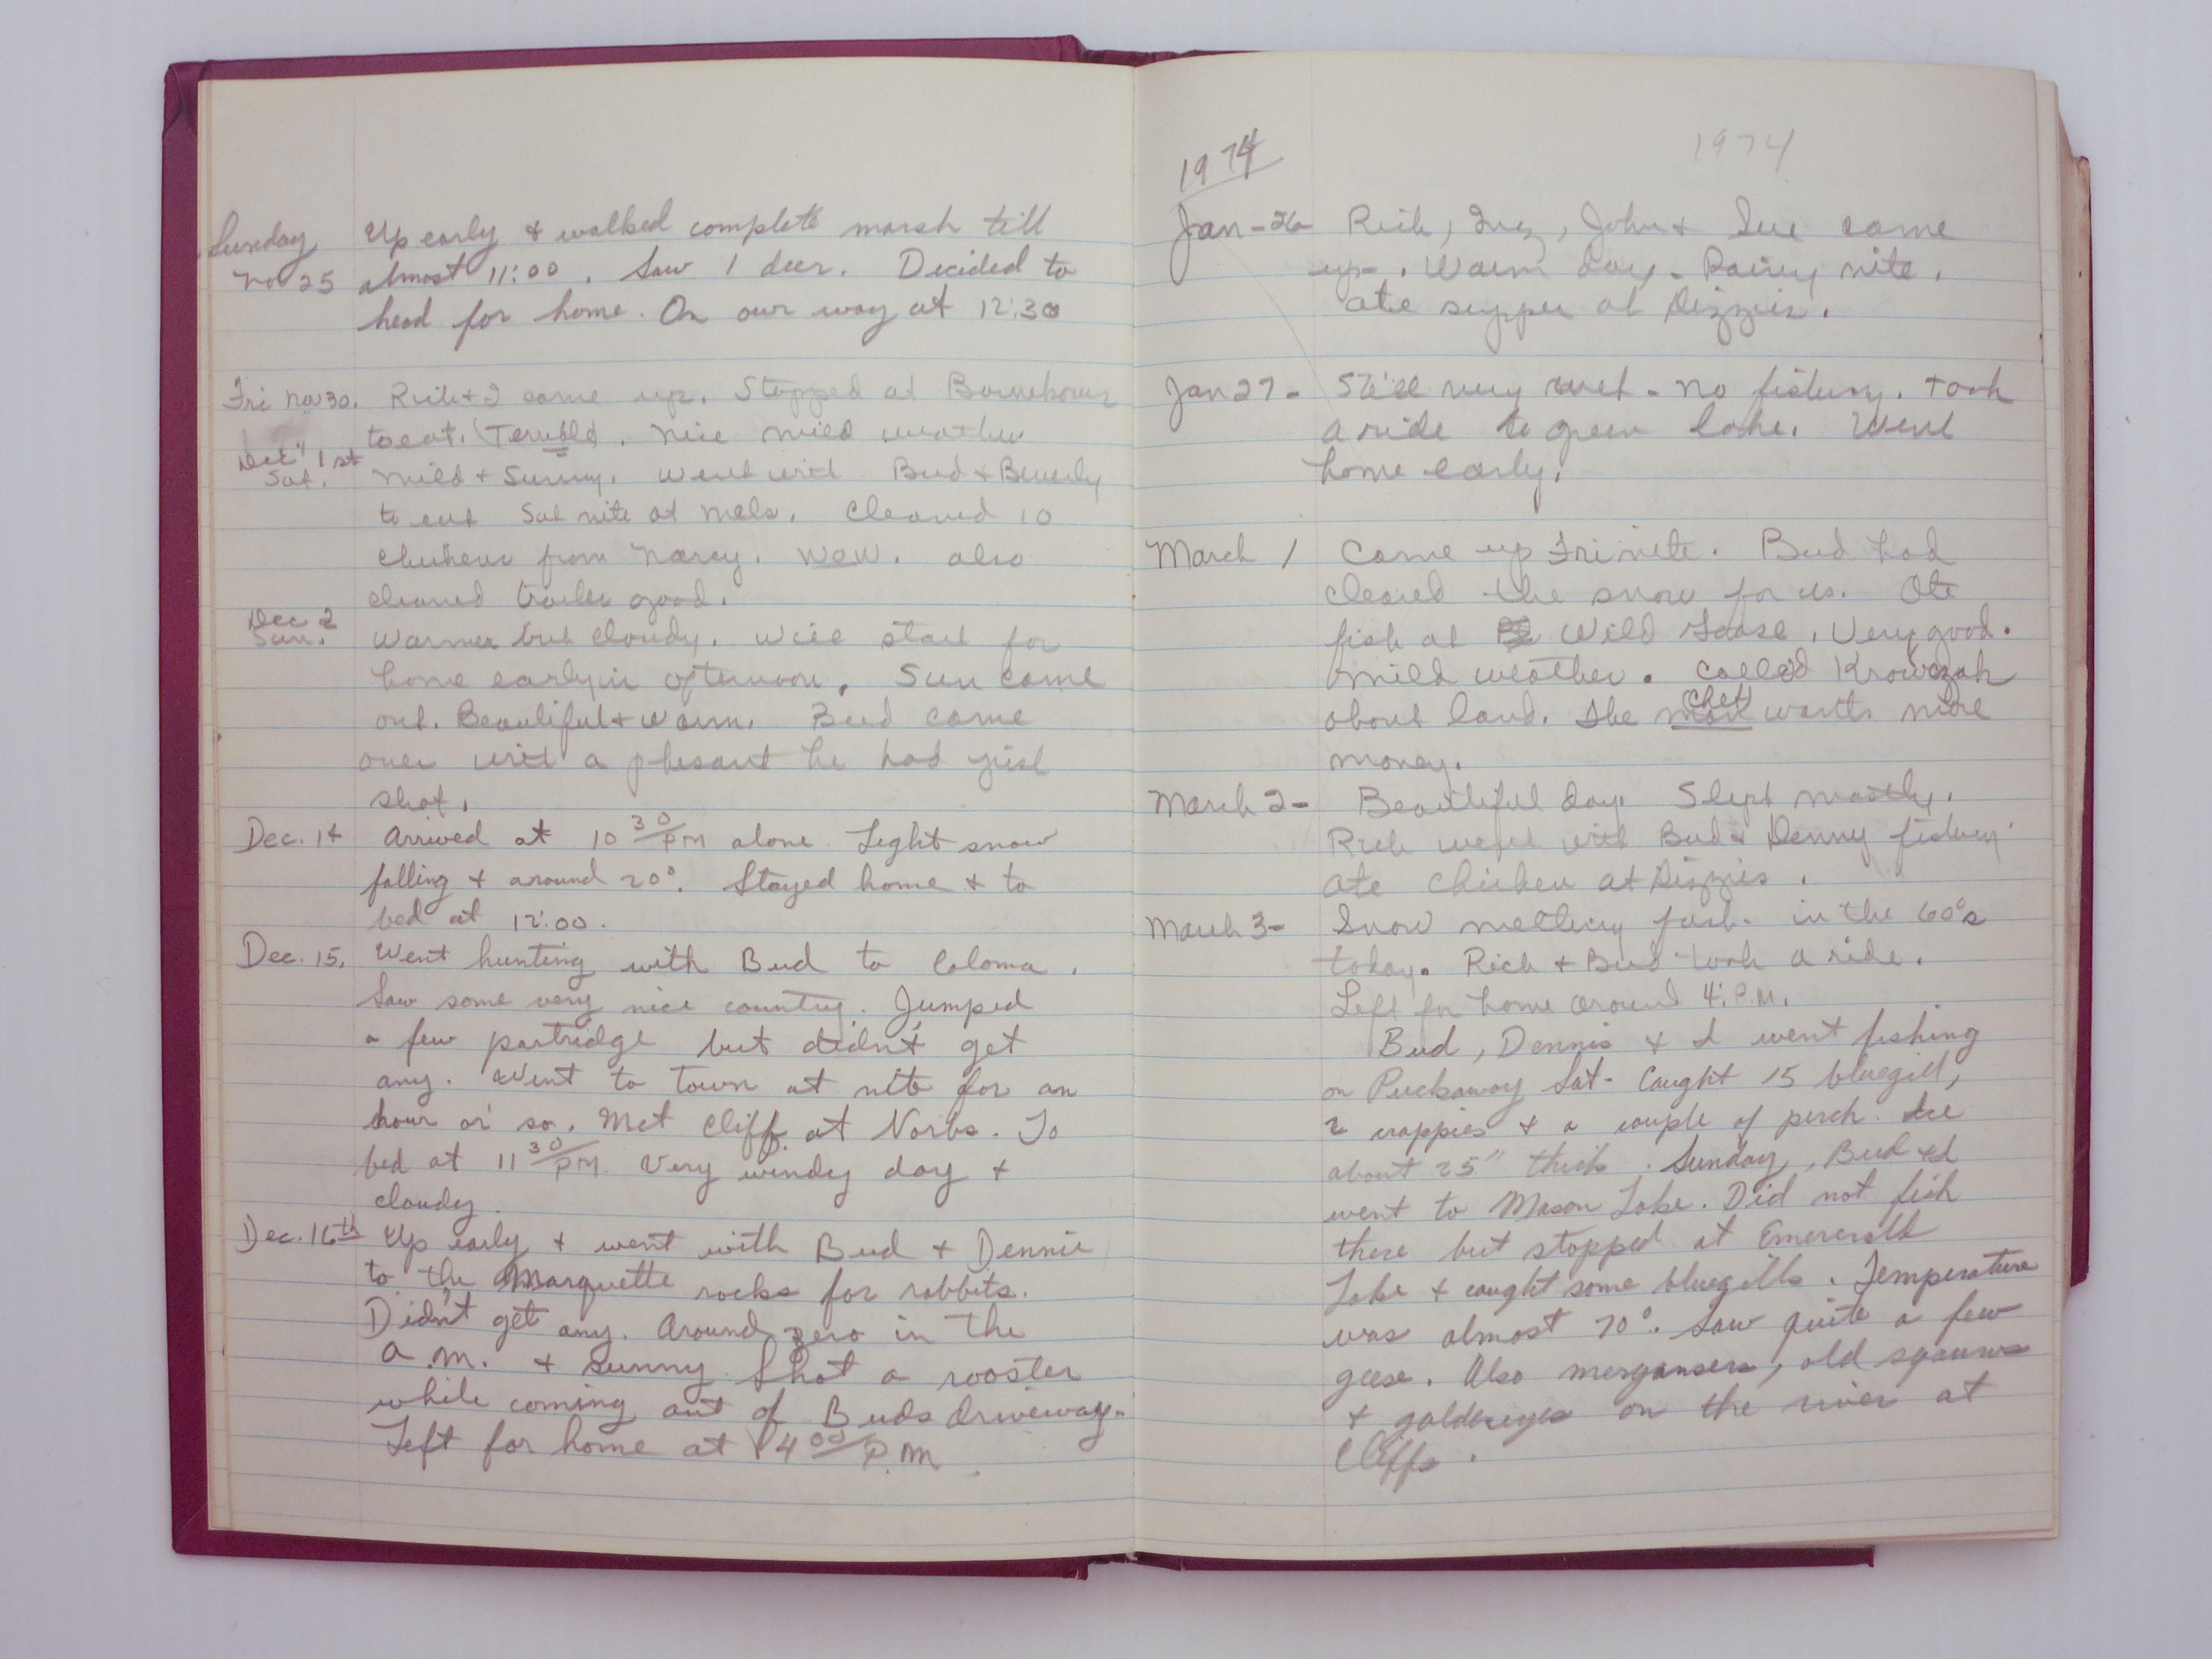 Sunday Up early & walked complete marsh till
Nov 25 almost 11:00. Saw 1 deer. Decided to
head for home. On our way at 12:30
Fri Nov 30. Rich & I came up. Stopped at
to eat. (Terrible). Nice mild weather
Dec 1st Sat. Mild & Sunny. Went with Bud & Beverly
to eat Sat nite at Mels. Cleaned 10
chickens from Nancy. WOW. also
cleaned trailer good.
Dec 2 Sun. Warmer but cloudy. Will start for
home early in afternoon. Sun came
out. Beautiful & Warm. Bud came
over with a phesant he had just
shot.
Dec. 14 Arrived at 10 30/PM alone. Light snow
falling & around 20°. Stayed home & to
bed at 12:00.
Dec. 15, Went hunting with Bud to Coloma.
Saw some very nice country. Jumped
a few partridge but didn't get
any. Went to town at nite for an
hour or so. Met Cliff at Norbs. To
bed at 11 30/PM. Very windy day &
cloudy.
Dec. 16th Up early & went with Bud & Dennis
to the Marquette rocks for rabbits.
Didn't get any. Around zero in the
a.m. & sunny. Shot a rooster
while coming out of Buds driveway.
Left for home at 4 00/P.M.
1974
1974
Jan-26 Rich, Inez, John & Sue came
up. Warm day - Rainy nite.
ate supper at Dizzies.
Jan 27- Still very wet - no fishing. Took
a ride to green lake. Went
home early.
March 1 Came up Fri nite. Bud had
cleared the snow for us. Ate
fish at Wild Goose. Very good.
Mild weather. Called Krowczak
about land. She Chet wants more
money.
March 2- Beautiful day. Slept mostly.
Rich went with Bud & Denny fishing
ate chicken at Dizzies.
March 3- Snow melting fast. in the 60°s
today. Rich & Bud took a ride.
Left for home around 4: P.M.
Bud, Dennis & I went fishing
on Puckaway Sat- Caught 15 bluegill,
2 crappies & a couple of perch. Ice
about 25" thick. Sunday, Bud & I
went to Mason Lake. Did not fish
there but stopped at Emererald
Lake & caught some bluegills. Temperature
was almost 70°. Saw quite a few
geese. Also mergansers, old squaws
& goldeneyes on the river at
Cliffs.